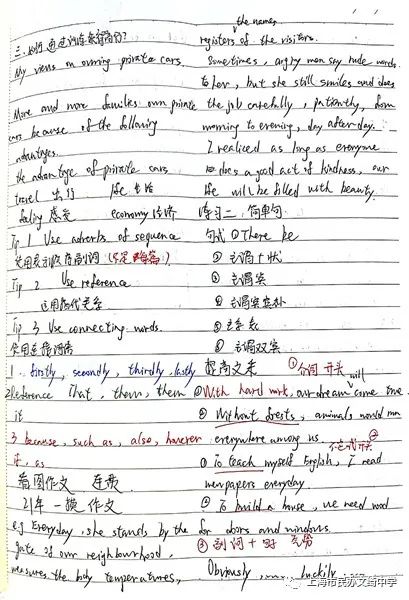 三.如何通过词连来得高分?
My views on owning private cars.
More and more families own private
cars because of the following
advantages.
the advantage of private cars
travel 出行 life 生活
feeling 感受 economy 经济
Tip 1 Use adverbs of sequence
使用表示顺序副词
Tip 2 Use reference
运用指代关系
Tip 3 Use connecting words.
使用连接词
1. firstly, secondly, thirdly, lastly
2 Reference That, them, them
it
3 because, such as, also, however
if, as
看图作文 连贯
21年一模 作文
e.g. Everyday, she stands by the
gate of our neighbourhood,
measures the body temperatures,
the names
registers of the visitors.
Sometimes, angry men say rude words
to her, but she still smiles and does
the job carefully, patiently, from
morning to evening, day after day.
I realised as long as everyone
does a good act of kindness, our
life will be filled with beauty.
练习二:简单句
句式 ① There be
② 主谓+状
③ 主谓宾
④ 主谓宾宾补
⑤ 主系表
⑥ 主谓双宾
提高文采 ① 介词 开头
① With hard work, our dream will come true
② Without , animals would 
everywhere among us. ②
① To teach myself English, I read
newspapers everyday
② To build a house, we need wood
for doors and windows.
③ 副词+
Obviously, Luckily,
上海市民办文绮中学